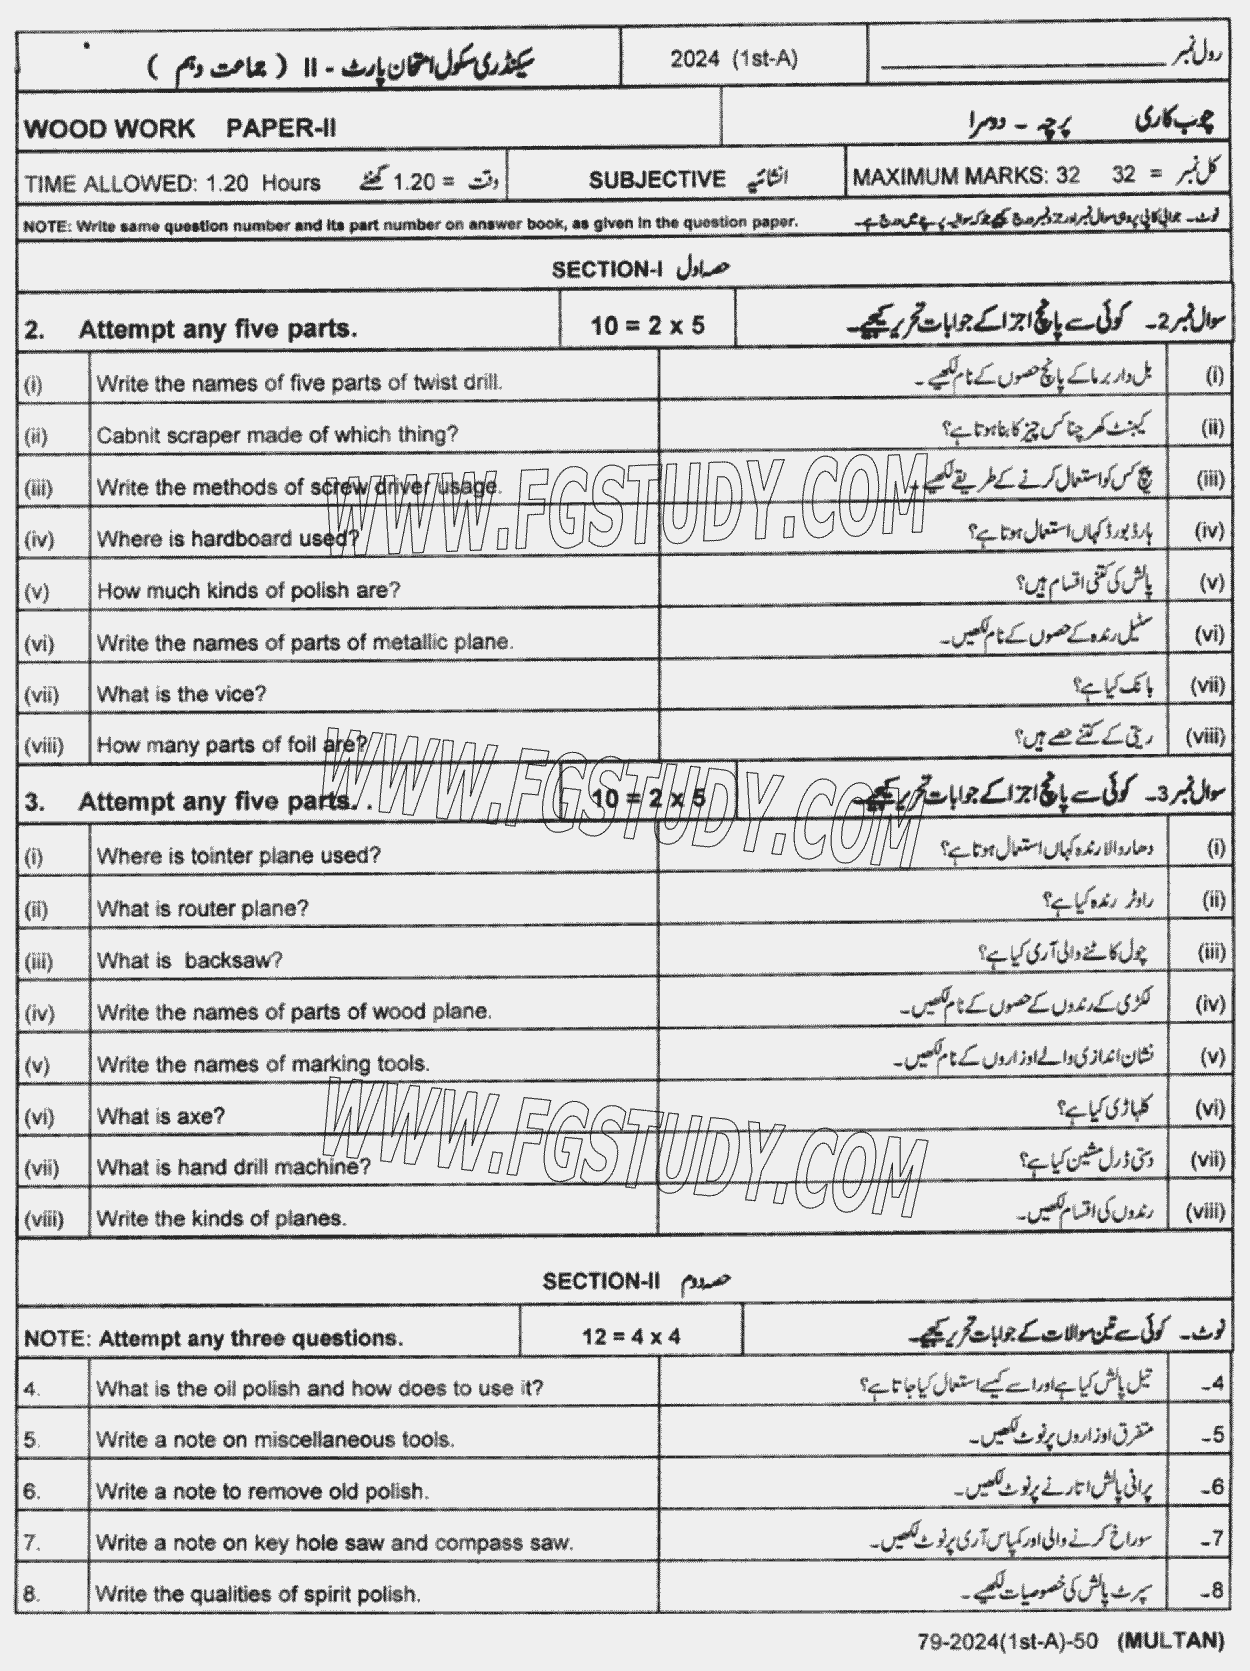 سیکنڈری سکول امتحان پارٹ - II ( جماعت دہم ) 2024 (1st-A) رول نمبر
WOOD WORK PAPER-II چوب کاری پرچہ - دوسرا
TIME ALLOWED: 1.20 Hours وقت = 1.20 گھنٹے SUBJECTIVE انشائیہ MAXIMUM MARKS: 32 کل نمبر = 32
NOTE: Write same question number and its part number on answer book, as given in the question paper. نوٹ۔ جوابی کاپی پر وہی سوال نمبر اور جزو نمبر درج کیجیے جو کہ سوالیہ پرچے میں درج ہے۔
SECTION-I حصہ اول
2. Attempt any five parts. 10 = 2 x 5 سوال نمبر 2۔ کوئی سے پانچ اجزا کے جوابات تحریر کیجیے۔
(i) Write the names of five parts of twist drill. بل دار برما کے پانچ حصوں کے نام لکھیے ۔ (i)
(ii) Cabnit scraper made of which thing? کیبنٹ کھرچنا کس چیز کا بنا ہوتا ہے؟ (ii)
(iii) Write the methods of screw driver usage. پیچ کس کو استعمال کرنے کے طریقے لکھیے ۔ (iii)
(iv) Where is hardboard used? ہارڈ بورڈ کہاں استعمال ہوتا ہے؟ (iv)
(v) How much kinds of polish are? پالش کی کتنی اقسام ہیں؟ (v)
(vi) Write the names of parts of metallic plane. سٹیل رندہ کے حصوں کے نام لکھیں۔ (vi)
(vii) What is the vice? بانک کیا ہے؟ (vii)
(viii) How many parts of foil are? ریتی کے کتنے حصے ہیں؟ (viii)
3. Attempt any five parts. . 10 = 2 x 5 سوال نمبر 3۔ کوئی سے پانچ اجزا کے جوابات تحریر کیجیے۔
(i) Where is tointer plane used? دھار والا رندہ کہاں استعمال ہوتا ہے؟ (i)
(ii) What is router plane? راوٹر رندہ کیا ہے؟ (ii)
(iii) What is backsaw? چول کاٹنے والی آری کیا ہے؟ (iii)
(iv) Write the names of parts of wood plane. لکڑی کے رندوں کے حصوں کے نام لکھیں۔ (iv)
(v) Write the names of marking tools. نشان اندازی والے اوزاروں کے نام لکھیں۔ (v)
(vi) What is axe? کلہاڑی کیا ہے؟ (vi)
(vii) What is hand drill machine? دستی ڈرل مشین کیا ہے؟ (vii)
(viii) Write the kinds of planes. رندوں کی اقسام لکھیں۔ (viii)
SECTION-II حصہ دوم
NOTE: Attempt any three questions. 12 = 4 x 4 نوٹ۔ کوئی سے تین سوالات کے جوابات تحریر کیجیے۔
4. What is the oil polish and how does to use it? تیل پالش کیا ہے اور اسے کیسے استعمال کیا جاتا ہے؟ 4۔
5. Write a note on miscellaneous tools. متفرق اوزاروں پر نوٹ لکھیں۔ 5۔
6. Write a note to remove old polish. پرانی پالش اتارنے پر نوٹ لکھیں۔ 6۔
7. Write a note on key hole saw and compass saw. سوراخ کرنے والی اور کمپاس آری پر نوٹ لکھیں۔ 7۔
8. Write the qualities of spirit polish. سپرٹ پالش کی خصوصیات لکھیے ۔ 8۔
79-2024(1st-A)-50 (MULTAN)
WWW.FGSTUDY.COM
WWW.FGSTUDY.COM
WWW.FGSTUDY.COM